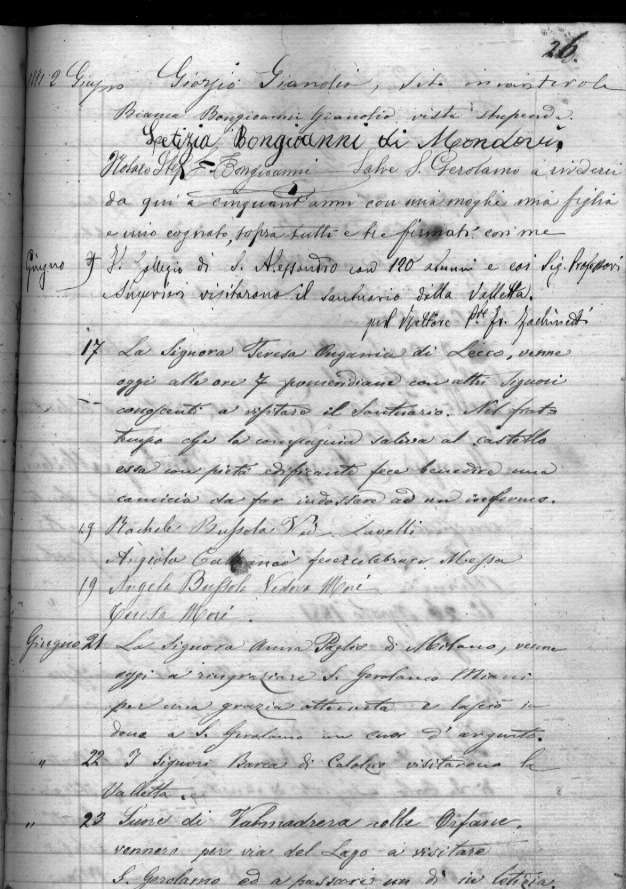 26.
2 Giugno Giorgio Gianolio, sito incantevole
Bianca Bongioanni Gianolio vista stupenda
Letizia Bongioanni di Mondovì
Notaro Bongioanni Salve S. Gerolamo a rivederci
da qui a cinquant'anni con mia moglie mia figlia
e mio cognato, sopra tutti e tre firmati con me
Giugno 9 Il Collegio di S. Alessandro con 120 alunni e coi Sig. Professori
Superiori visitarono il santuario della Valletta.
pel Rettore
17 La Signora Teresa Ongania di Lecco, venne
oggi alle ore 7 pomeridiane con altri Signori
conoscenti a visitare il Santuario. Nel frat-
tempo che la compagnia saliva al castello
essa con pietà edificante fece benedire una
camicia da far indossare ad un infermo.
19 Rachele Bussola Ved. Lavelli
Angiola fece celebrare Messa
19 Angela Bussola Vedova Moré
Teresa Moré.
Giugno 21 La Signora Anna Paglia di Milano, venne
oggi a ringraziare S. Gerolamo Miani
per una grazia ottenuta e lasciò in
dono a S. Girolamo un cuor d'argento.
" 22 I Signori Barca di Calolzio visitarono la
Valletta.
" 23 Suore di Valmadrera colle Orfane,
vennero per via del Lago a visitare
S. Gerolamo ed a passarvi un dì in letizia